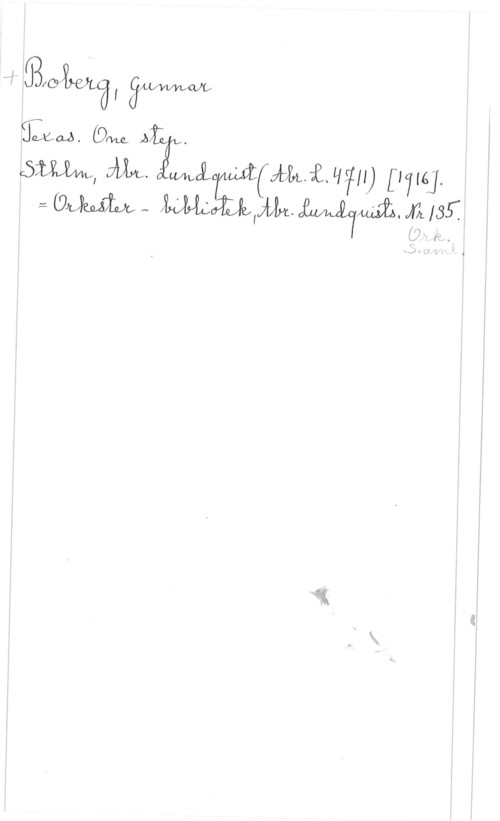 + Boberg, Gunnar
Texas. One step.
Sthlm, Abr. Lundquist (Abr. L. 4711) [1916].
= Orkester - bibliotek, Abr. Lundquists. Nr 135.
Ork.
S.aml.